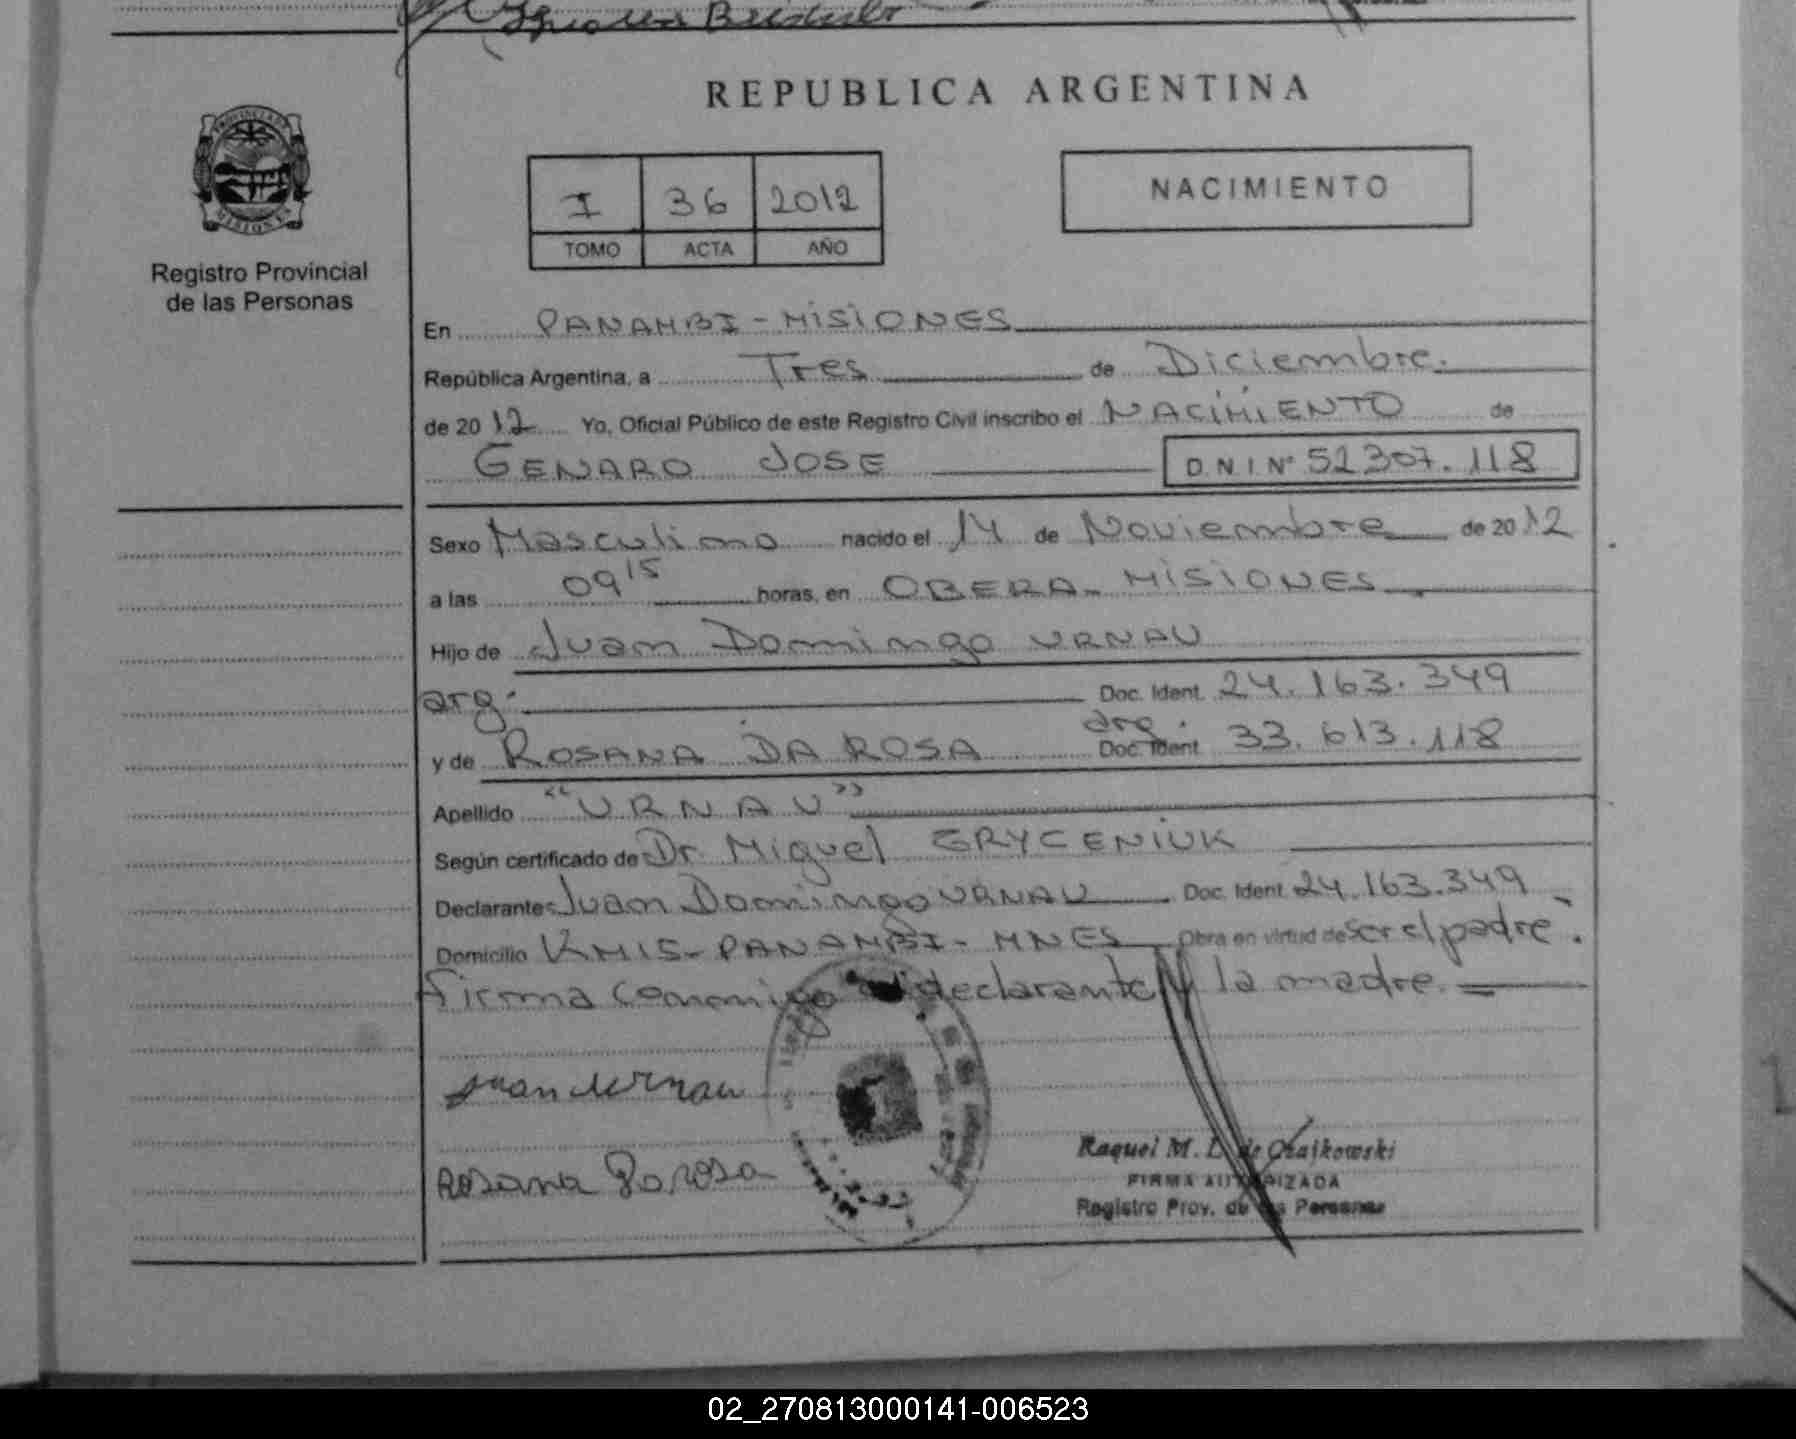 REPUBLICA ARGENTINA
PROVINCIA DE
MISIONES
Registro Provincial
de las Personas
I 36 2012
TOMO ACTA AÑO
NACIMIENTO
En PANAMBI - MISIONES
República Argentina, a Tres de Diciembre.
de 2012 Yo, Oficial Público de este Registro Civil inscribo el NACIMIENTO de
GENARO JOSE D.N.I Nº 52307.118
Sexo Masculino nacido el 14 de Noviembre de 2012
a las 09 15 horas, en OBERA - MISIONES
Hijo de Juan Domingo URNAU
arg. Doc. Ident. 24.163.349
arg.
y de ROSANA DA ROSA Doc. Ident 33.613.118
Apellido "URNAU"
Según certificado de Dr. Miguel GRYCENIUK
Declarante Juan Domingo URNAU Doc. Ident. 24.163.349
Domicilio KM15 - PANAMBI - MNES Obra en virtud de ser el padre.
firma conmigo declarante y la madre.
Juan Urnau
Rosana Da rosa
Raquel M. L. de Czajkowski
FIRMA AUTORIZADA
Registro Prov. de las Personas
02_270813000141-006523